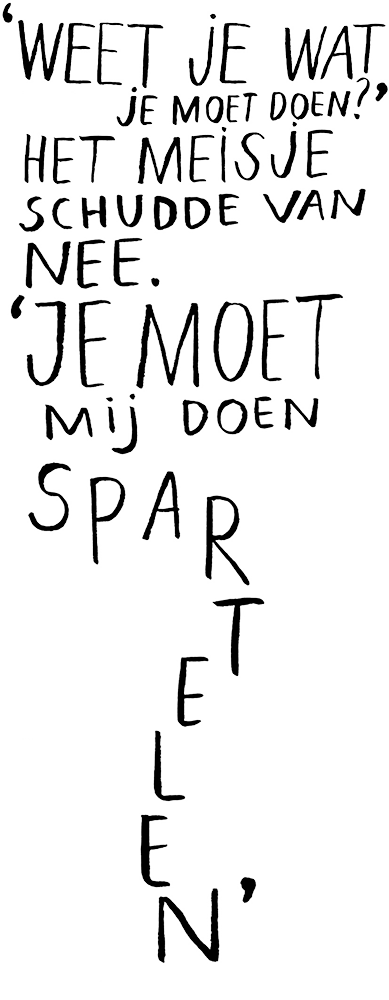 ‘WEET JE WAT
JE MOET DOEN?’
HET MEISJE
SCHUDDE VAN
NEE.
‘JE MOET
MIJ DOEN
SPARTELEN’